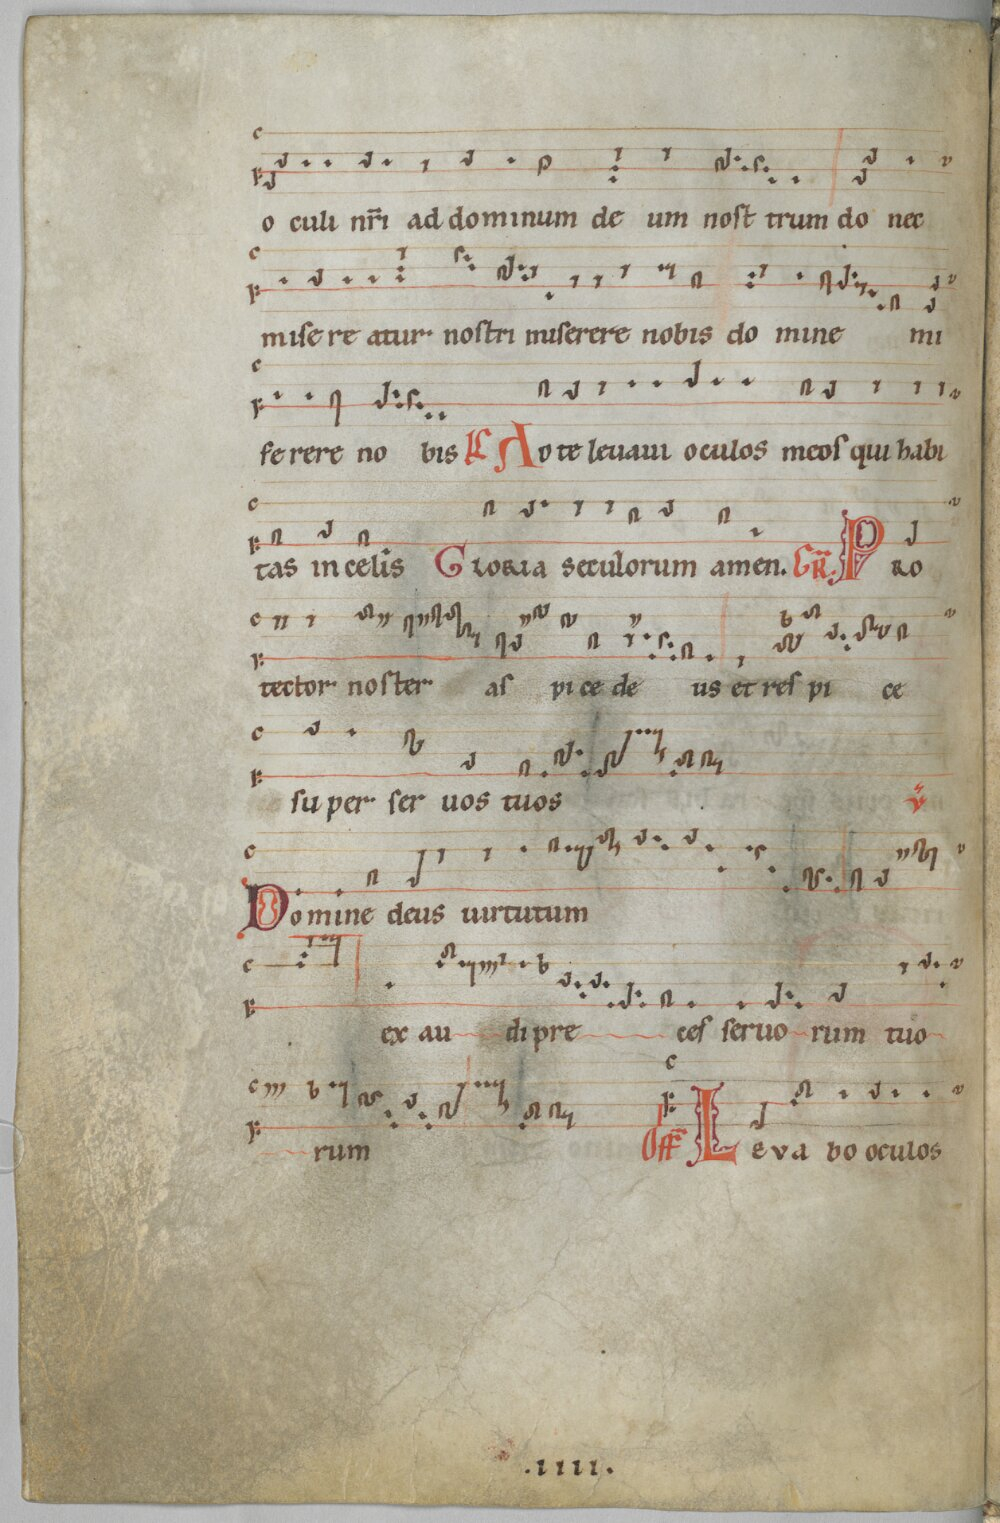 o culi nr̄i ad dominum de um nost trum do nec
mise re atur nostri miserere nobis do mine mi
serere no bis Ps Ad te levavi oculos meos qui habi
tas in celis Gloria seculorum amen. GR. PRO
tector noster as pi ce de us et res pi ce
super ser vos tuos v̄
Domine deus virtutum
ex au di pre ces servo rum tuo
rum Off LEVA bo oculos
.IIII.